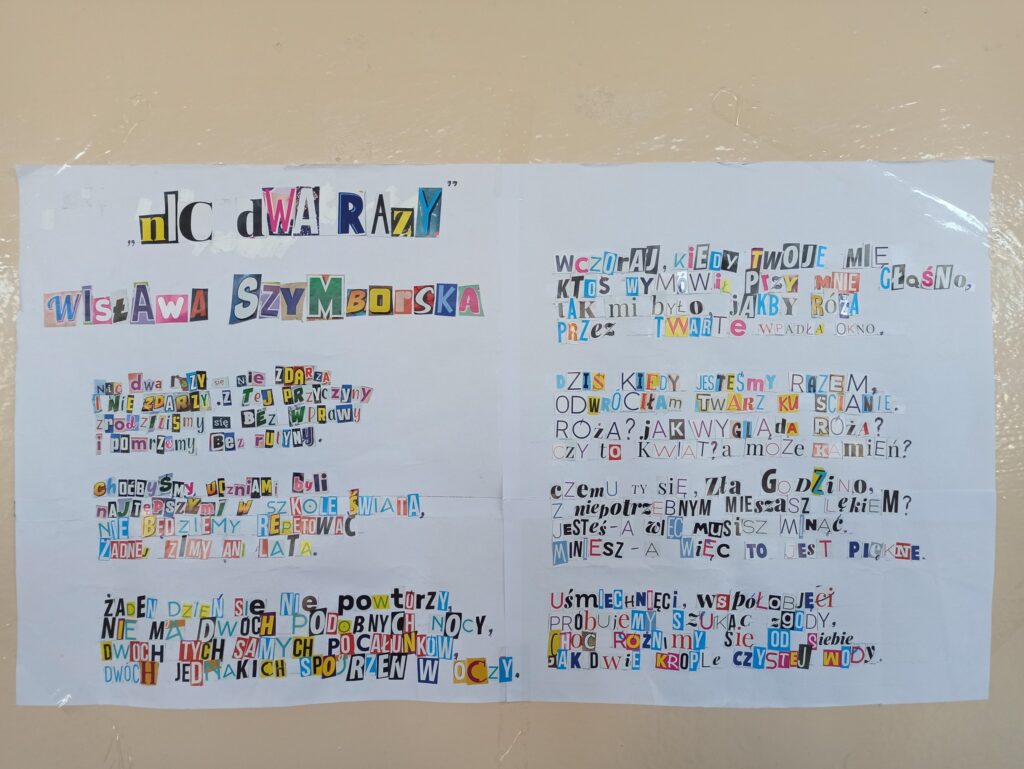 „nIC dWA RAZY”
WISŁAWA SZYMBORSKA
Nic dwa razy się nie ZDARZA
I NIE ZDARZY. Z TEJ PRZYCZYNY
zrodziliśmy się BEZ WPRAWY
i pomrzemy BEZ rutyny.
choćbyśmy uczniami byli
najtępszymi w SZKOLE ŚWIATA,
NIE BĘDZIEMY REPETOWAĆ
ŻADNEJ ZIMY ANI LATA.
ŻADEN DZIEŃ się NIE powtórzy,
NIE MA DWÓCH PODOBNYCH NOCY,
DWÓCH TYCH SAMYCH POCAŁUNKÓW,
DWÓCH JEDNAKICH SPOJRZEŃ W OCZY.
WCZORAJ, KIEDY TWOJE MIĘ
KTOŚ WYMÓWIŁ PRZY MNIE GŁOŚNO,
TAK mi było, JAKBY RÓŻA
PRZEZ TWARTE WPADŁA OKNO.
DZIŚ KIEDY JESTEŚMY RAZEM,
ODWRÓCIŁAM TWARZ KU ŚCIANIE.
RÓŻA? JAK WYGLĄDA RÓŻA?
CZY to KWIAT? a MOŻE KAMIEŃ?
CZEMU TY SIĘ, ZŁA GODZINO,
Z niepotrzebnym MIESZASZ LĘKIEM?
JESTEŚ-A WIĘC MUSISZ MINĄĆ.
MINIESZ-A WIĘC TO JEST PIĘKNE.
Uśmiechnięci, współobjęci
PRÓBUJEMY SZUKAĆ zgody,
CHOĆ RÓŻNIMY SIĘ OD siebie
JAK DWIE KROPLE CZYSTEJ WODY.